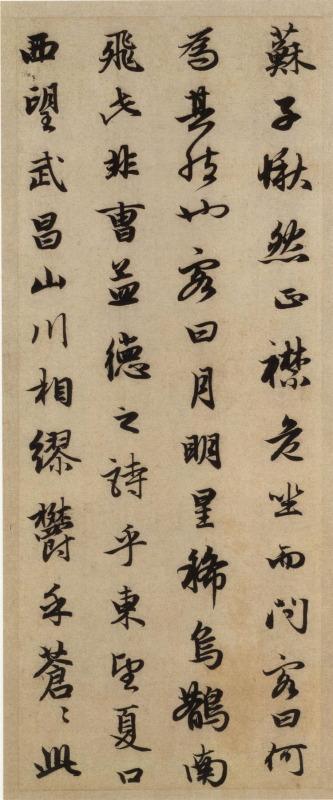 蘇子愀然正襟危坐而問客曰何
為其然也客曰月明星稀烏鵲南
飛此非曹孟德之詩乎東望夏口
西望武昌山川相繆鬱乎蒼〻此